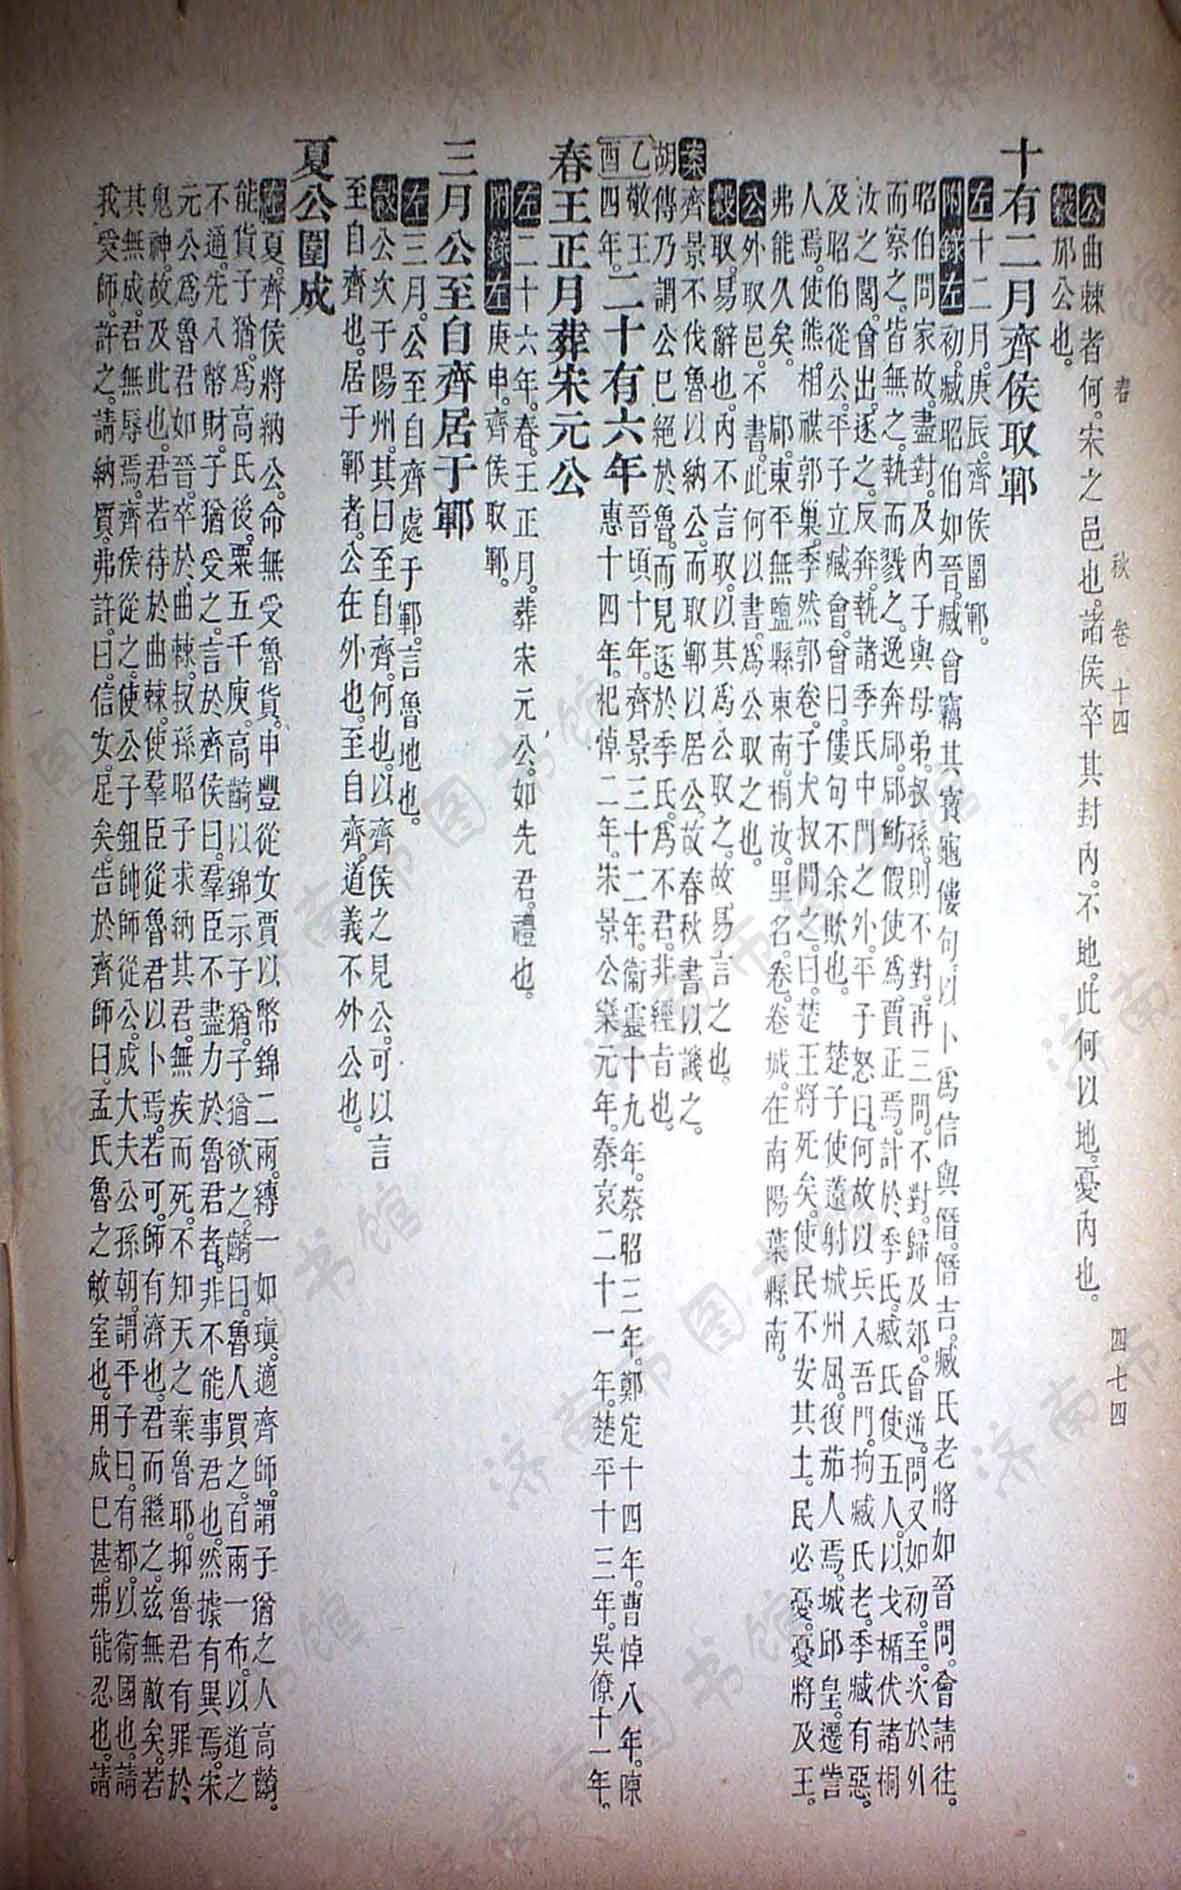 春秋 卷十四 四七四
公曲棘者何。宋之邑也。諸侯卒其封內。不地。此何以地。憂內也。
穀邡公也。
十有二月齊侯取鄆
左十二月。庚辰。齊侯圍鄆。
附錄左初。臧昭伯如晉。臧會竊其寶龜僂句。以卜爲信與僭。僭吉。臧氏老將如晉問。會請往。
昭伯問家故。盡對。及內子與母弟。叔孫。則不對。再三問。不對。歸及郊。會逆。問。又如初。至。次於外
而察之。皆無之。執而戮之。逸奔郈。郈魴假使爲賈正焉。計於季氏。臧氏使五人。以戈楯伏諸桐
汝之閭。會出。逐之。反奔。執諸季氏中門之外。平子怒曰。何故以兵入吾門。拘臧氏老。季臧有惡。
及昭伯從公。平子立臧會。會曰。僂句不余欺也。 楚子使薳射城州屈。復茄人焉。城邱皇。遷訾
人焉。使熊相禖郭巢。季然郭卷。子大叔聞之。曰。楚王將死矣。使民不安其土。民必憂。憂將及王。
弗能久矣。 郈。東平無鹽縣東南。桐汝。里名。卷。卷城。在南陽葉縣南。
公外取邑。不書。此何以書。爲公取之也。
穀取。易辭也。內不言取。以其爲公取之。故易言之也。
案齊景不伐魯以納公。而取鄆以居公。故春秋書以譏之。
胡傳乃謂公已絕於魯。而見逐於季氏。爲不君。非經旨也。
乙酉 敬王四年。二十有六年 晉頃十年。齊景三十二年。衞靈十九年。蔡昭三年。鄭定十四年。曹悼八年。陳
惠十四年。杞悼二年。宋景公欒元年。秦哀二十一年。楚平十三年。吳僚十一年。
春王正月葬宋元公
左二十六年。春。王正月。葬宋元公。如先君。禮也。
附錄左庚申。齊侯取鄆。
三月公至自齊居于鄆
左三月。公至自齊。處于鄆。言魯地也。
穀公次于陽州。其曰至自齊。何也。以齊侯之見公。可以言
至自齊也。居于鄆者。公在外也。至自齊。道義不外公也。
夏公圍成
左夏。齊侯將納公。命無受魯貨。申豐從女賈以幣錦二兩。縛一如瑱。適齊師。謂子猶之人高齮。
能貨子猶。爲高氏後。粟五千庾。高齮以錦示子猶。子猶欲之。齮曰。魯人買之。百兩一布。以道之
不通。先入幣財。子猶受之。言於齊侯曰。羣臣不盡力於魯君者。非不能事君也。然據有異焉。宋
元公爲魯君如晉。卒於曲棘。叔孫昭子求納其君。無疾而死。不知天之棄魯耶。抑魯君有罪於
鬼神。故及此也。君若待於曲棘。使羣臣從魯君以卜焉。若可。師有濟也。君而繼之。茲無敵矣。若
其無成。君無辱焉。齊侯從之。使公子鉏帥師從公。成大夫公孫朝。謂平子曰。有都。以衞國也。請
我受師。許之。請納質。弗許。曰。信女。足矣。告於齊師曰。孟氏魯之敝室也。用成已甚。弗能忍也。請